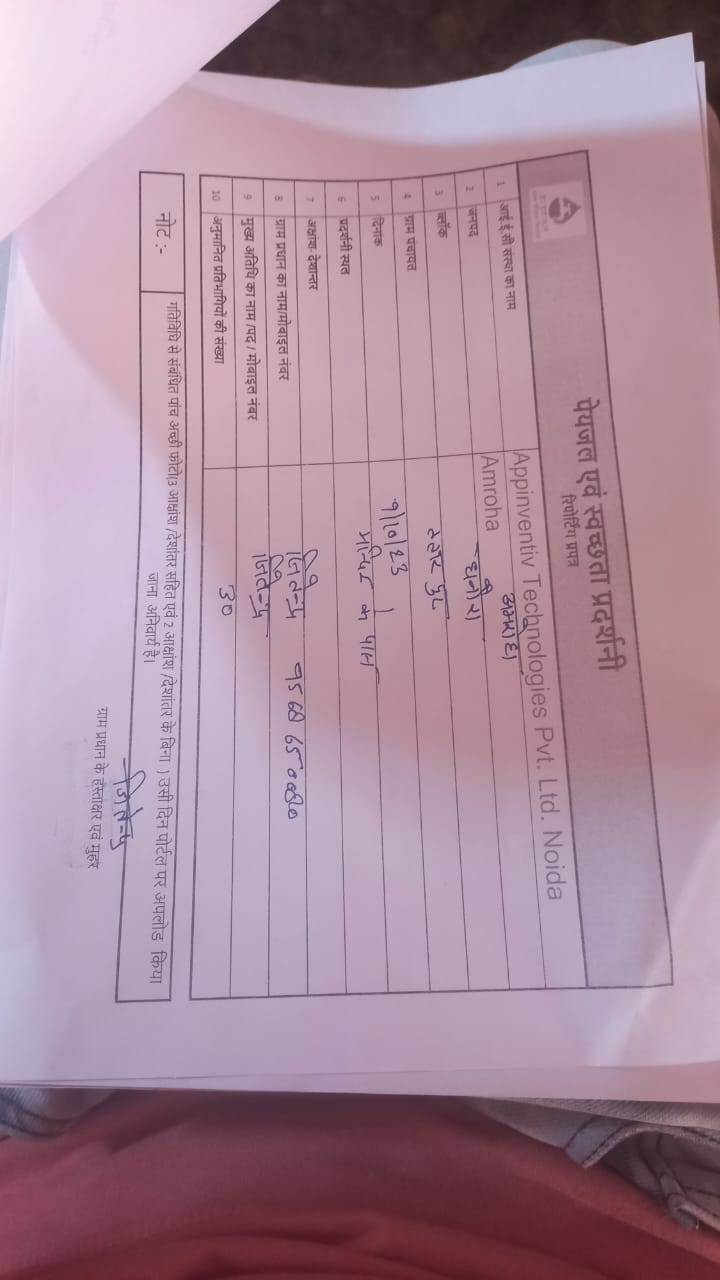 पेयजल एवं स्वच्छता प्रदर्शनी
रिपोर्टिंग प्रपत्र
1 आई.ई.सी संस्था का नाम Appinventiv Technologies Pvt. Ltd. Noida
2 जनपद Amroha अमरोहा
3 ब्लॉक धनौरा
4 ग्राम पंचायत
5 दिनांक 9/10/23
6 प्रदर्शनी स्थल मन्दिर के पास
7 अक्षांश- देशान्तर
8 ग्राम प्रधान का नाम/मोबाइल नंबर जितेन्द्र
9 मुख्य अतिथि का नाम /पद / मोबाइल नंबर जितेन्द्र
10 अनुमानित प्रतिभागियों की संख्या 30
नोट :- गतिविधि से संबंधित पांच अच्छी फोटो(3 आक्षांश /देशांतर सहित एवं 2 आक्षांश /देशांतर के बिना ) उसी दिन पोर्टल पर अपलोड किया
जाना अनिवार्य है।
जितेन्द्र
ग्राम प्रधान के हस्ताक्षर एवं मुहर